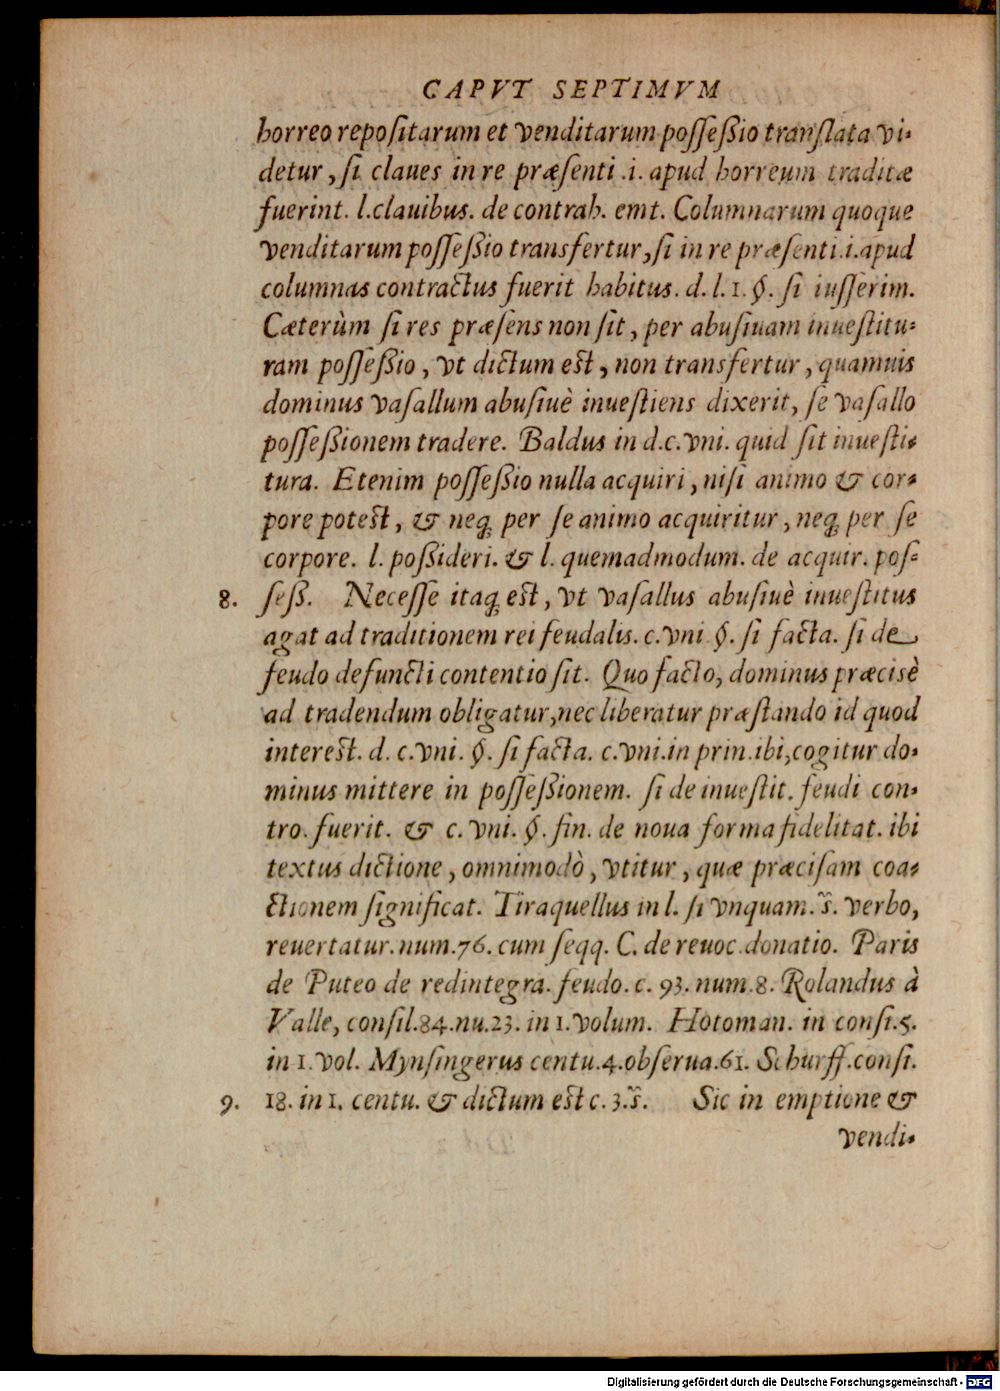 CAPVT SEPTIMVM
horreo repoſitarum et venditarum poſſeßio tranſlata vi-
detur, ſi claues in re præſenti .i. apud horreum traditæ
fuerint. l.clauibus. de contrah. emt. Columnarum quoque
venditarum poſſeßio transfertur, ſi in re præſenti.i.apud
columnas contractus fuerit habitus. d. l. 1. §. ſi iuſſerim.
Cæterùm ſi res præſens non ſit, per abuſiuam inueſtitu-
ram poſſeßio, vt dictum est, non transfertur, quamuis
dominus vaſallum abuſiuè inueſtiens dixerit, ſe vaſallo
poſſeßionem tradere. Baldus in d.c.vni. quid ſit inueſti-
tura. Etenim poſſeßio nulla acquiri, niſi animo & cor-
pore potest, & neq; per ſe animo acquiritur, neq; per ſe
corpore. l. poßideri. & l. quemadmodum. de acquir. poſ-
8. ſeß. Neceſſe itaq; est, vt vaſallus abuſiuè inueſtitus
agat ad traditionem rei feudalis. c.vni §. ſi facta. ſi de
feudo defuncti contentio ſit. Quo facto, dominus præcisè
ad tradendum obligatur, nec liberatur præſtando id quod
interest. d. c.vni. §. ſi facta. c.vni.in prin.ibi,cogitur do-
minus mittere in poſſeßionem. ſi de inueſtit. feudi con-
tro. fuerit. & c. vni. §. fin. de noua forma fidelitat. ibi
textus dictione, omnimodò, vtitur, quæ præciſam coa-
ctionem ſignificat. Tiraquellus in l. ſi vnquam. s̃. verbo,
reuertatur. num.76. cum ſeqq. C. de reuoc.donatio. Paris
de Puteo de redintegra. feudo. c. 93. num.8. Rolandus à
Valle, conſil.84.nu.23. in 1.volum. Hotoman. in conſi.5.
in 1. vol. Mynſingerus centu.4.obſerua.61. Schurff.conſi.
9. 18. in 1. centu. & dictum est c. 3.s̃. Sic in emptione &
vendi-
Digitalisierung gefördert durch die Deutsche Forschungsgemeinschaft - DFG